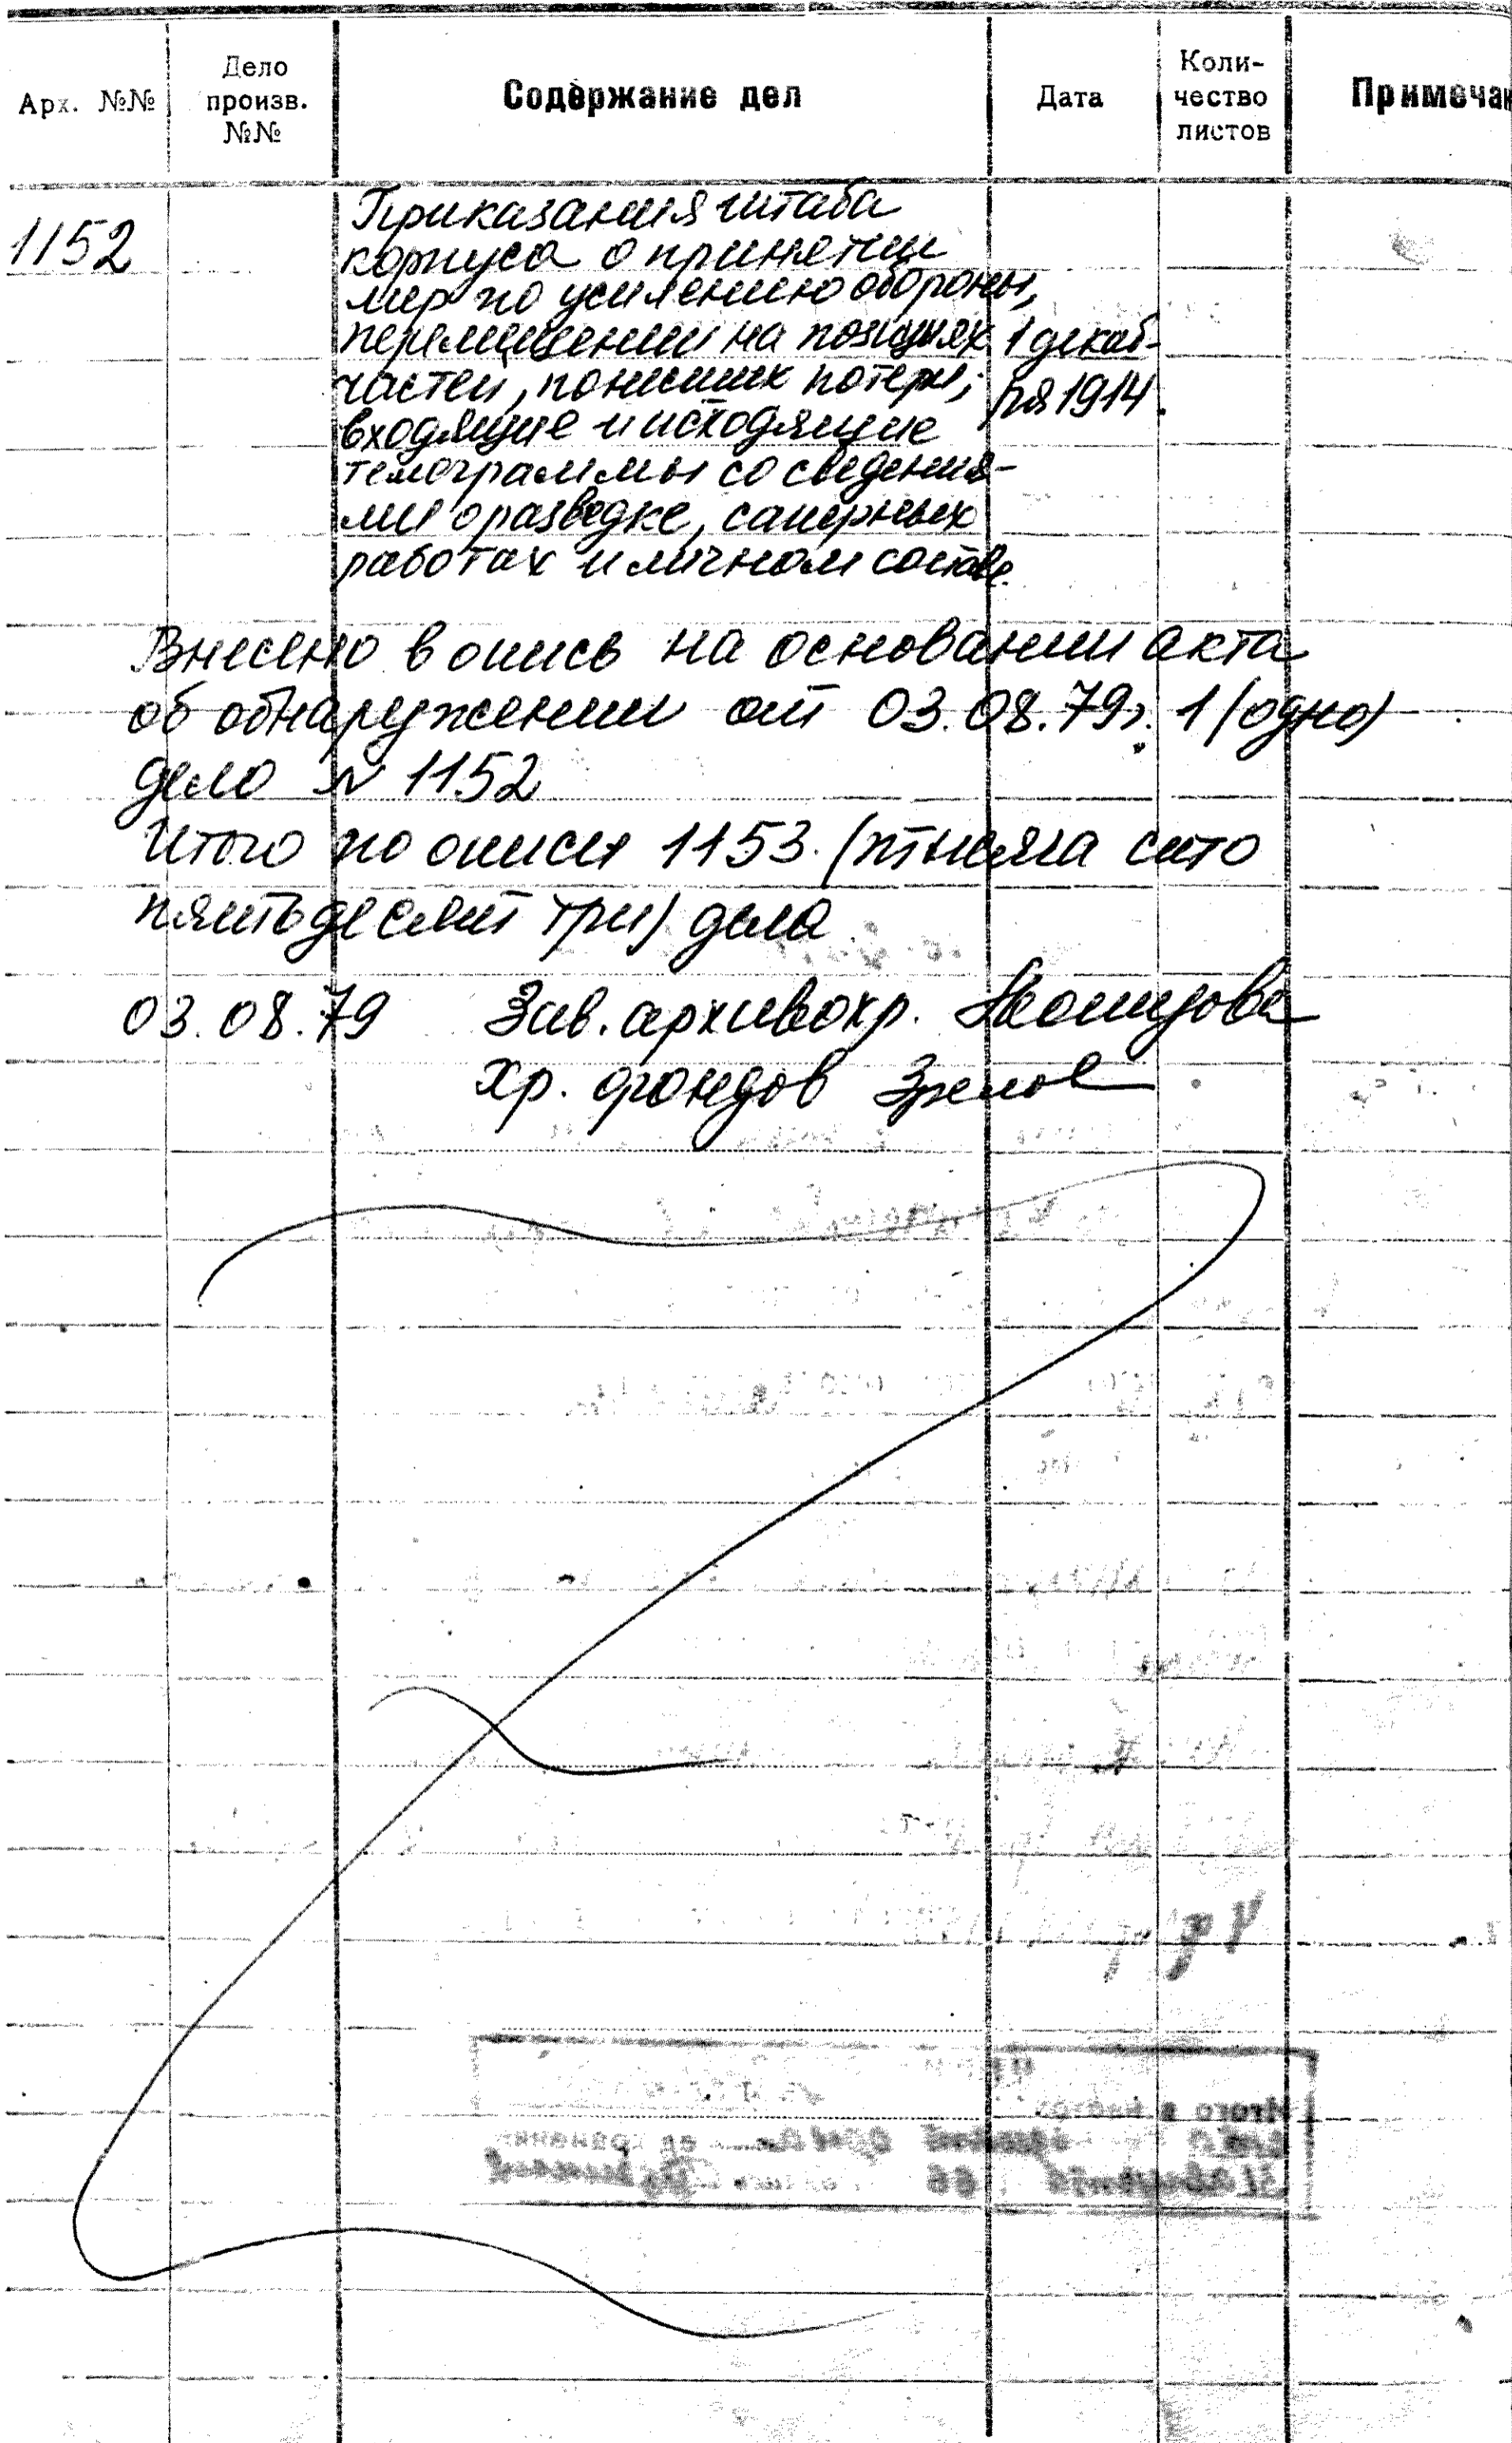 Арх. №№
Дело произв. №№
Содержание дел
Дата
Коли-
чество
листов
Примечан
1152
Приказания штаба
корпуса о принятии
мер по усилению обороны,
перемещении на позициях
частей, понесших потери;
входящие и исходящие
телеграммы со сведения-
ми о разведке, саперных
работах и личном составе.
1 декаб-
ря 1914.
Внесено в опись на основании акта
об обнаружении от 03.08.79г. 1 (одно)
дело N 1152
Итого по описи 1153. (тысяча сто
пятьдесят три) дела
03.08.79 Зав. архивохр.
Хр. фондов